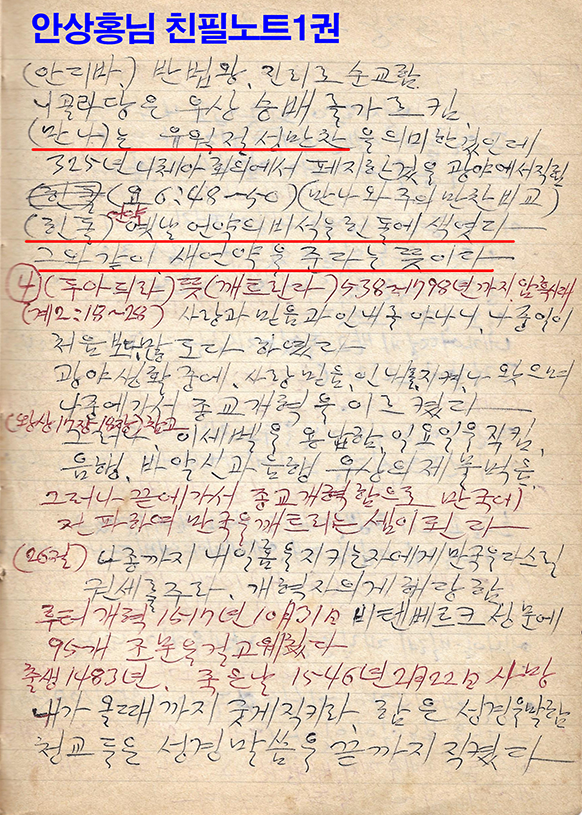 안상홍님 친필노트1권
(안디바) 반법왕, 진리로 순교함
니골라당은 우상 숭배를 가르킴,
(만나)는 유월절 성만찬을 의미한것인데
325년 니케아 회의에서 폐지한것을 광야에서 직힘
(요 6:48~50) (만나와 주의 만찬 비교)
(힌돌) 옛날 언약의 비석을 힌돌에 색였다
그와 같이 새언약을 준다는 뜻이다
④ (두아듸라) 뜻 (깨트린다) 538~1798년까지 암흑시대
(계2:18~28) 사랑과 믿음과 인내를 아나니, 나종일이
처음 보다 많도다 하였다
광야 생활 중에, 사랑 믿음, 인내를 지켜 나왓으며
나중에 가서 종교개혁을 이르켰다
(왕상17장, 18장 참고) 이세벨을 용납함, 일요일을 직킴,
음행, 바알신과 음행 우상의 제물먹는,
그러나 끝에가서 종교개혁함으로 만국에
전파하여 만국을 깨트리는 셈이 된다
(26절) 나종까지 내일을 지키는자에게 만국을 다스릴
권세를 주리라, 개혁자의게 해당함
루터 개혁 1517년 10月31日 비텐베르크 성문에
95개 조문을 걸고 웨쳤다
출생 1483년, 죽은날 1546년 2月22日 사망
내가 올때까지 굳게 직키라 함은 성경을
청교도들은 성경말씀을 끝까지 직켰다